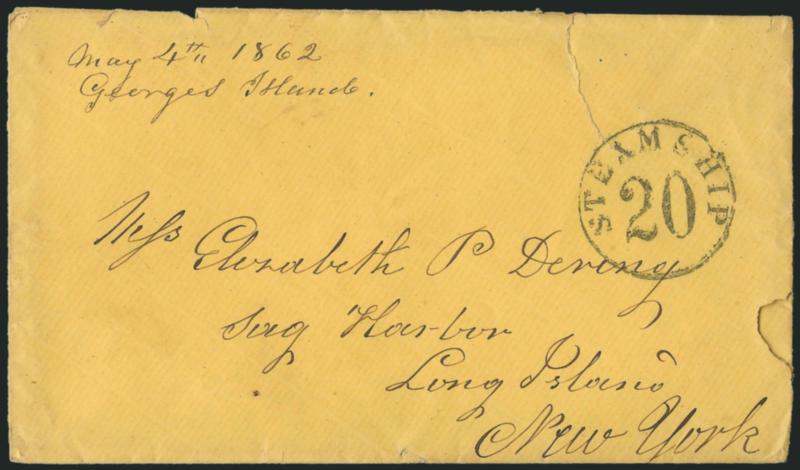 May 4th 1862
Georges Island.
STEAMSHIP
20
Miss Elizabeth P Dering
Sag Harbor
Long Island
New York